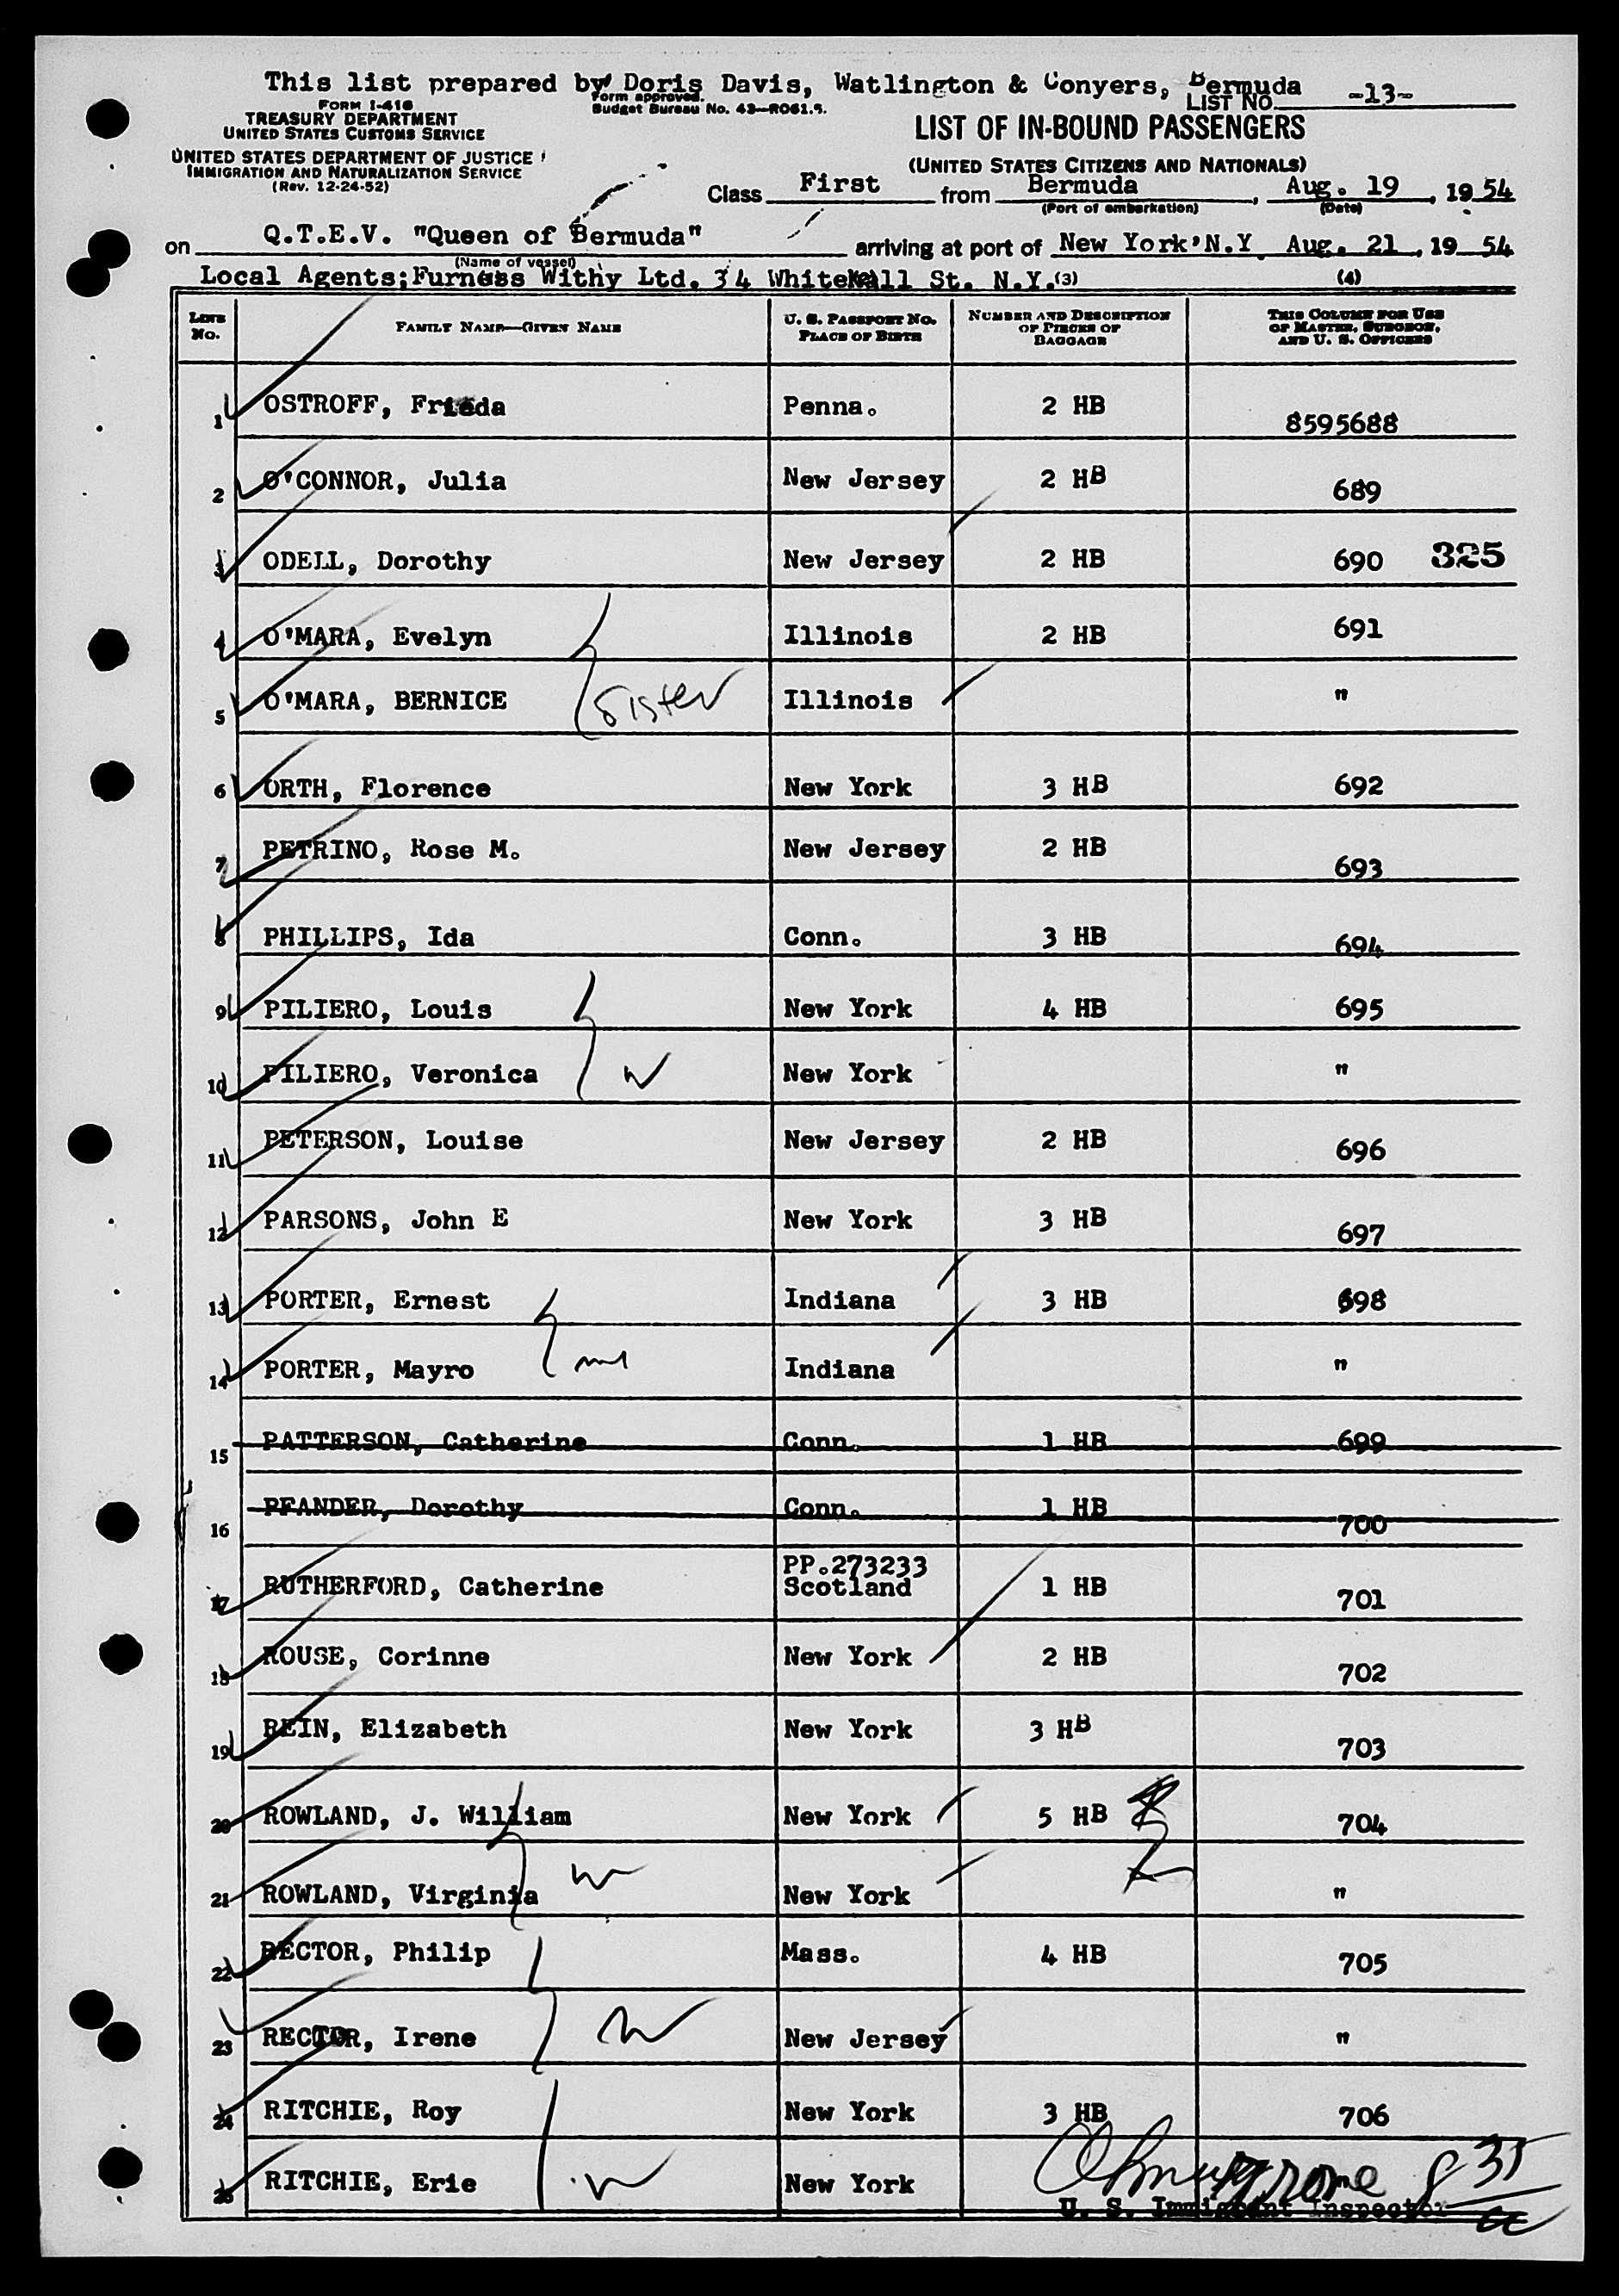 This list prepared by Doris Davis, Watlington & Conyers, Bermuda
LIST NO. -13-
FORM I-418
TREASURY DEPARTMENT
UNITED STATES CUSTOMS SERVICE
Form approved.
Budget Bureau No. 43—R061.5.
LIST OF IN-BOUND PASSENGERS
UNITED STATES DEPARTMENT OF JUSTICE
IMMIGRATION AND NATURALIZATION SERVICE
(Rev. 12-24-52)
(UNITED STATES CITIZENS AND NATIONALS)
Class First from Bermuda, Aug. 19, 1954
(Port of embarkation) (Date)
on Q.T.E.V. "Queen of Bermuda" arriving at port of New York, N.Y. Aug. 21, 1954
(Name of vessel)
Local Agents;Furness Withy Ltd. 34 Whitehall St. N.Y. (3) (4)
LINE No. FAMILY NAME—GIVEN NAME U. S. PASSPORT NO. PLACE OF BIRTH NUMBER AND DESCRIPTION OF PIECES OF BAGGAGE THIS COLUMN FOR USE OF MASTER, SURGEON, AND U. S. OFFICERS
1 OSTROFF, Frieda Penna. 2 HB 8595688
2 O'CONNOR, Julia New Jersey 2 HB 689
3 ODELL, Dorothy New Jersey 2 HB 690 325
4 O'MARA, Evelyn Illinois 2 HB 691
5 O'MARA, BERNICE sister Illinois "
6 ORTH, Florence New York 3 HB 692
7 PETRINO, Rose M. New Jersey 2 HB 693
8 PHILLIPS, Ida Conn. 3 HB 694
9 PILIERO, Louis New York 4 HB 695
10 PILIERO, Veronica w New York "
11 PETERSON, Louise New Jersey 2 HB 696
12 PARSONS, John E New York 3 HB 697
13 PORTER, Ernest Indiana 3 HB 698
14 PORTER, Mayro Indiana "
15 PATTERSON, Catherine Conn. 1 HB 699
16 PFANDER, Dorothy Conn. 1 HB 700
17 RUTHERFORD, Catherine PP.273233 Scotland 1 HB 701
18 ROUSE, Corinne New York 2 HB 702
19 REIN, Elizabeth New York 3 HB 703
20 ROWLAND, J. William New York 5 HB 704
21 ROWLAND, Virginia w New York "
22 RECTOR, Philip Mass. 4 HB 705
23 RECTOR, Irene w New Jersey "
24 RITCHIE, Roy New York 3 HB 706
25 RITCHIE, Erie w New York
U. S. Immigrant Inspector